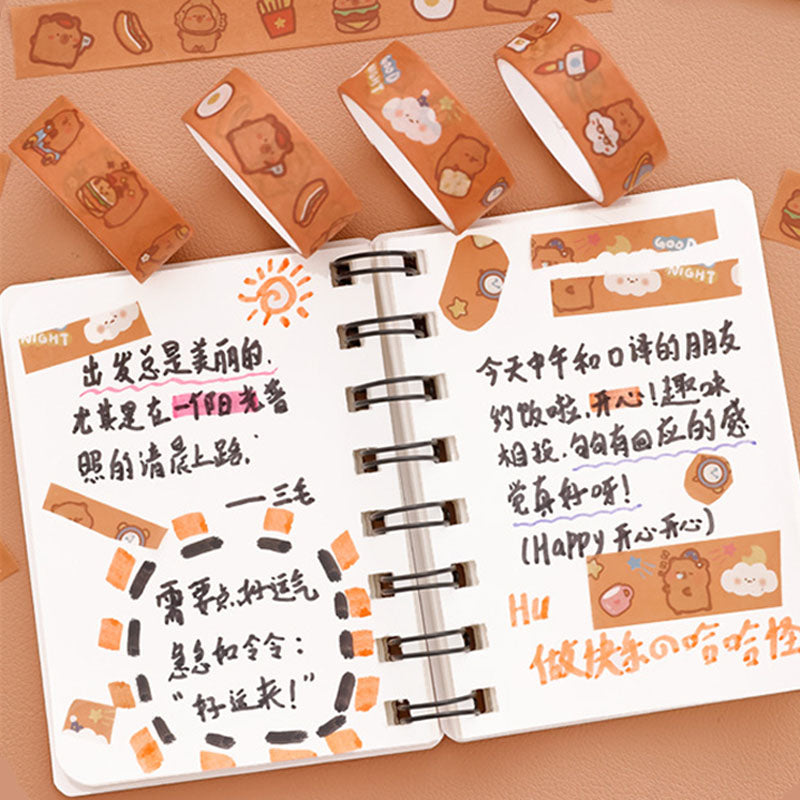 GOOD
NIGHT
NIGHT
出发总是美丽的.
尤其是在一个阳光普
照的清晨上路.
——三毛
需要点好运气
急急如令令:
“好运来!”
GOOD
NIGHT
今天中午和口译的朋友
约饭啦,开心!趣味
相投,句句有回应的感
觉真好呀!
(Happy 开心开心)
Hu
做快乐の哈哈怪